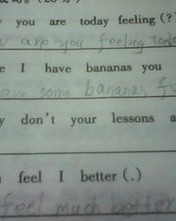 you are today feeling (?)
are you feeling today
I have bananas you
have some bananas
don't your lessons a
feel I better (.)
feel much better